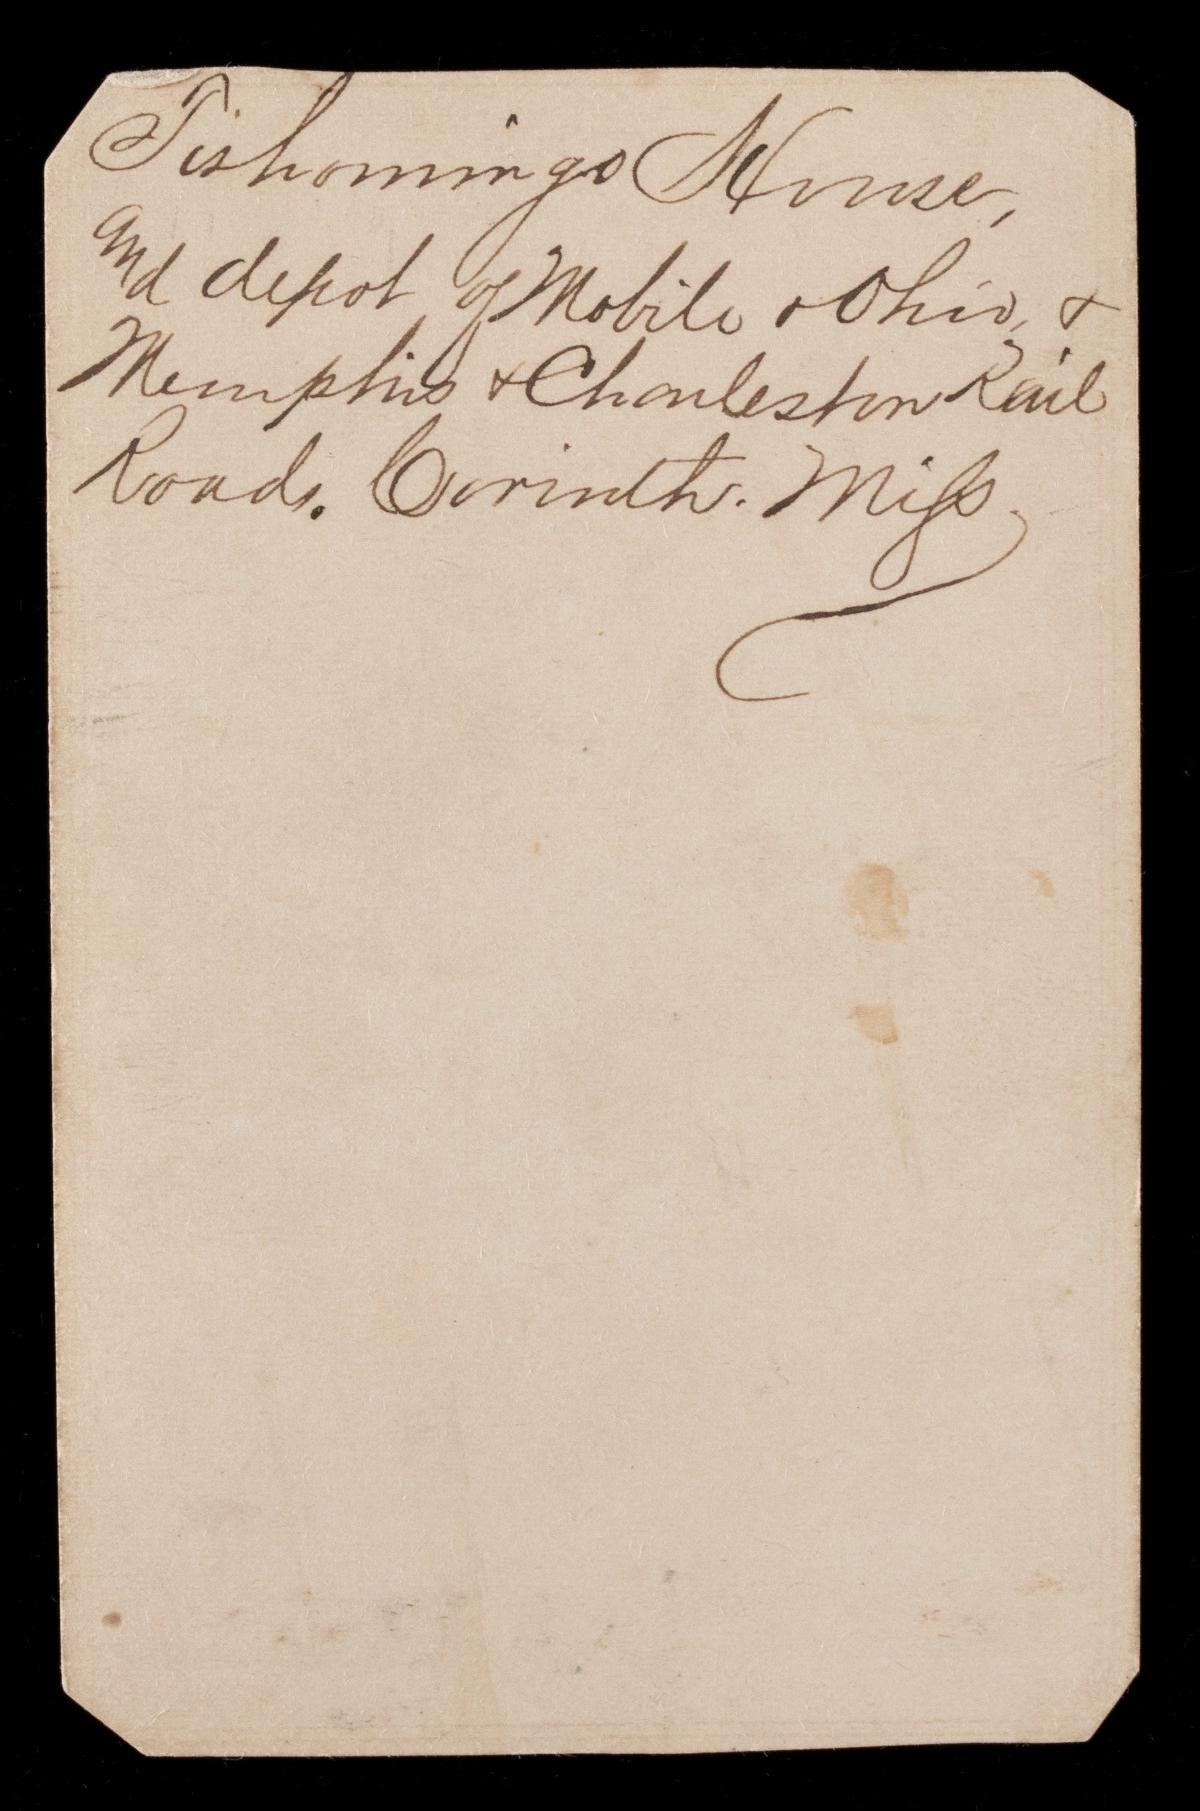 Tishomingo House,
and depot of Mobile & Ohio, &
Memphis & Charleston Rail
Roads. Corinth. Miss.